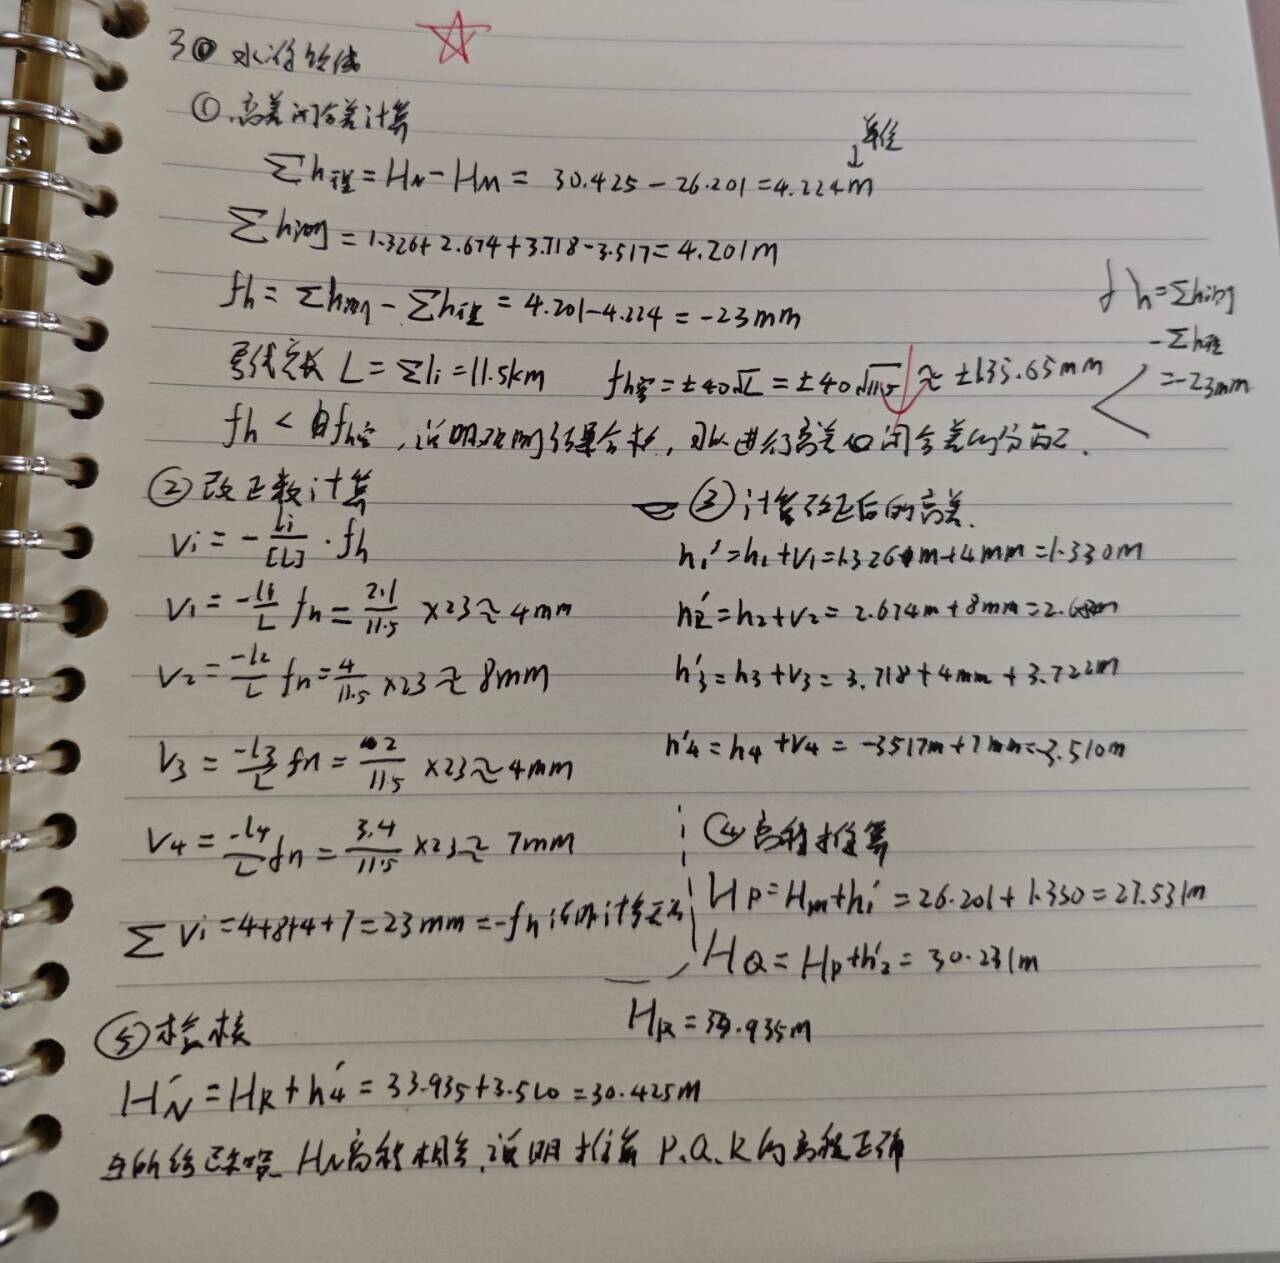 30 水准路线
① 高差闭合差计算
单位
↓
Σh程 = HN - HM = 30.425 - 26.201 = 4.224m
Σh测 = 1.326 + 2.674 + 3.718 - 3.517 = 4.201m
fh = Σh测 - Σh程 = 4.201 - 4.224 = -23mm
fh = Σh测
- Σh程
= -23mm
L = Σli = 11.5km fh容 = ±40√L = ±40√11.5 ≈ ±135.65mm
fh < fh容, 说明观测结果合格, 可以进行高差闭合差的分配.
② 改正数计算
Vi = - Li/[L] · fh
V1 = -l1/L fh = 2.1/11.5 ×23 ≈ 4mm
V2 = -l2/L fh = 4/11.5 ×23 ≈ 8mm
V3 = -l3/L fh = 2/11.5 ×23 ≈ 4mm
V4 = -l4/L fh = 3.4/11.5 ×23 ≈ 7mm
ΣVi = 4+8+4+7 = 23mm = -fh 说明计算无
③ 计算改正后的高差.
h1' = h1 + V1 = 1.326m + 4mm = 1.330m
h2' = h2 + V2 = 2.674m + 8mm =
h'3 = h3 + V3 = 3.718 + 4mm + 3.722m
h'4 = h4 + V4 = -3517m + 7mm = -3.510m
④ 高程推算
HP = Hm + h1' = 26.201 + 1.330 = 27.531m
HQ = HP + h'2 = 30.231m
HR = 33.935m
⑤ 检核
H'N = HR + h4' = 33.935 + 3.510 = 30.425m
HN高程相等, 说明推算 P.Q.R的高程正确